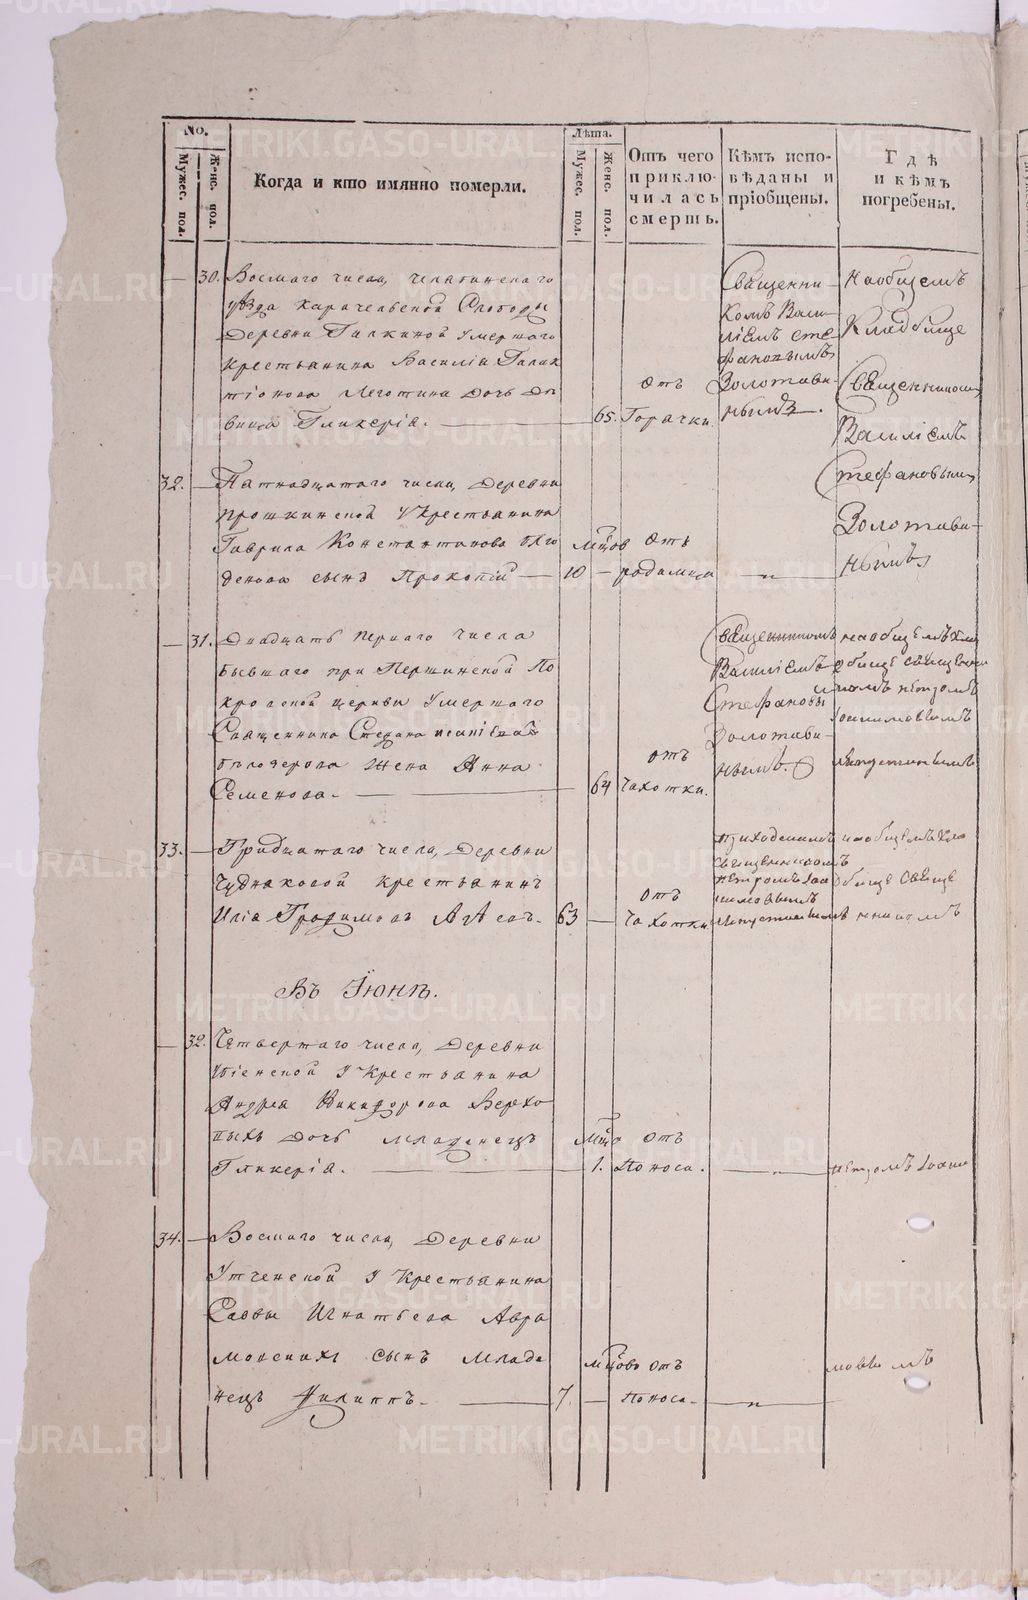 No.
Мужес. пол.
Женс. пол.
Когда и кто имянно померли.
Лѣта.
Мужес. пол.
Женс. пол.
Отъ чего
приклю-
чилась
смерть.
Кѣмъ испо-
вѣданы и
пріобщены.
Гдѣ
и кѣмъ
погребены.
— 30. Восмаго числа, Челябинскаго
уѣзда Карачельской Слободы
Деревни Галкиной умершаго
крестьянина Василія Галак
тіонова дочь дѣ
вица Гликерія. — 65.
отъ
Горячки
Священни-
комъ Васи-
ліемъ Сте-
фановымъ
Золотави-
нымъ.
На общемъ
Кладбище
Священникомъ
Василіемъ
Стефановымъ
Золотави-
нымъ
32. — Патнадцатаго числа, Деревни
Прошкинской у Крестьянина
Гаврила Константинова
сынъ Прокопій — мцов 10 —
отъ
родимца — „ —
— 31. Двадцать перваго числа
Бывшаго при Першинской По
кровской церкви Умершаго
Священника Стефана
Бѣлозерова Жена Анна
Семенова. — 64
отъ
Чахотки.
Священникомъ
Василіемъ
Стефановы
Золотави-
нымъ.
на общемъ Кла
дбище священ
никомъ Петромъ
Іоакимовымъ
33. — Тридцатаго числа, Деревни
Чудиаковой крестьянинъ
Илія Трофимовъ — 63 —
отъ
Чахотки
Приходскимъ
священникомъ
Петромъ Іоа
кимовымъ
на общемъ Кла
дбище Свяще
нникомъ
Въ Іюнѣ.
— 32. Четвертаго числа, Деревни
у Крестьянина
Андрея Никифорова Верхо
выхъ дочь младенецъ
Гликерія. — мцо 1.
отъ
Поноса. — „ —
Петромъ Іоаки
34. — Восмаго числа, Деревни
у Крестьянина
Саввы Игнатьева Авра
мовскихъ сынъ млада
нецъ Филиппъ. — мцово 7. —
отъ
Поноса. — „ —
мовымъ
METRIKI.GASO-URAL.RU